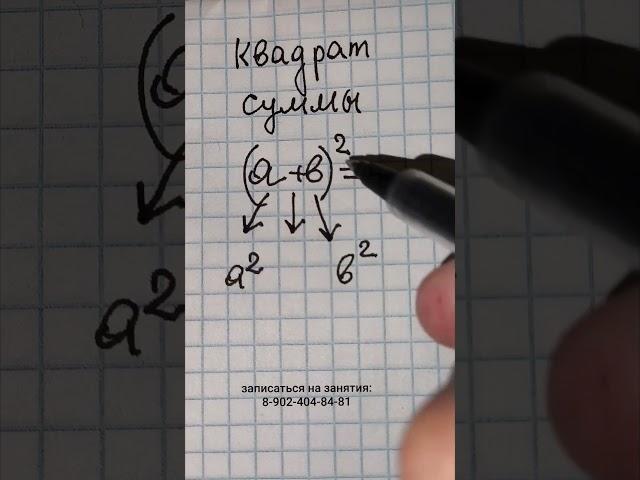 Квадрат
суммы
(а+в)² =
а² в²
записаться на занятия:
8-902-404-84-81